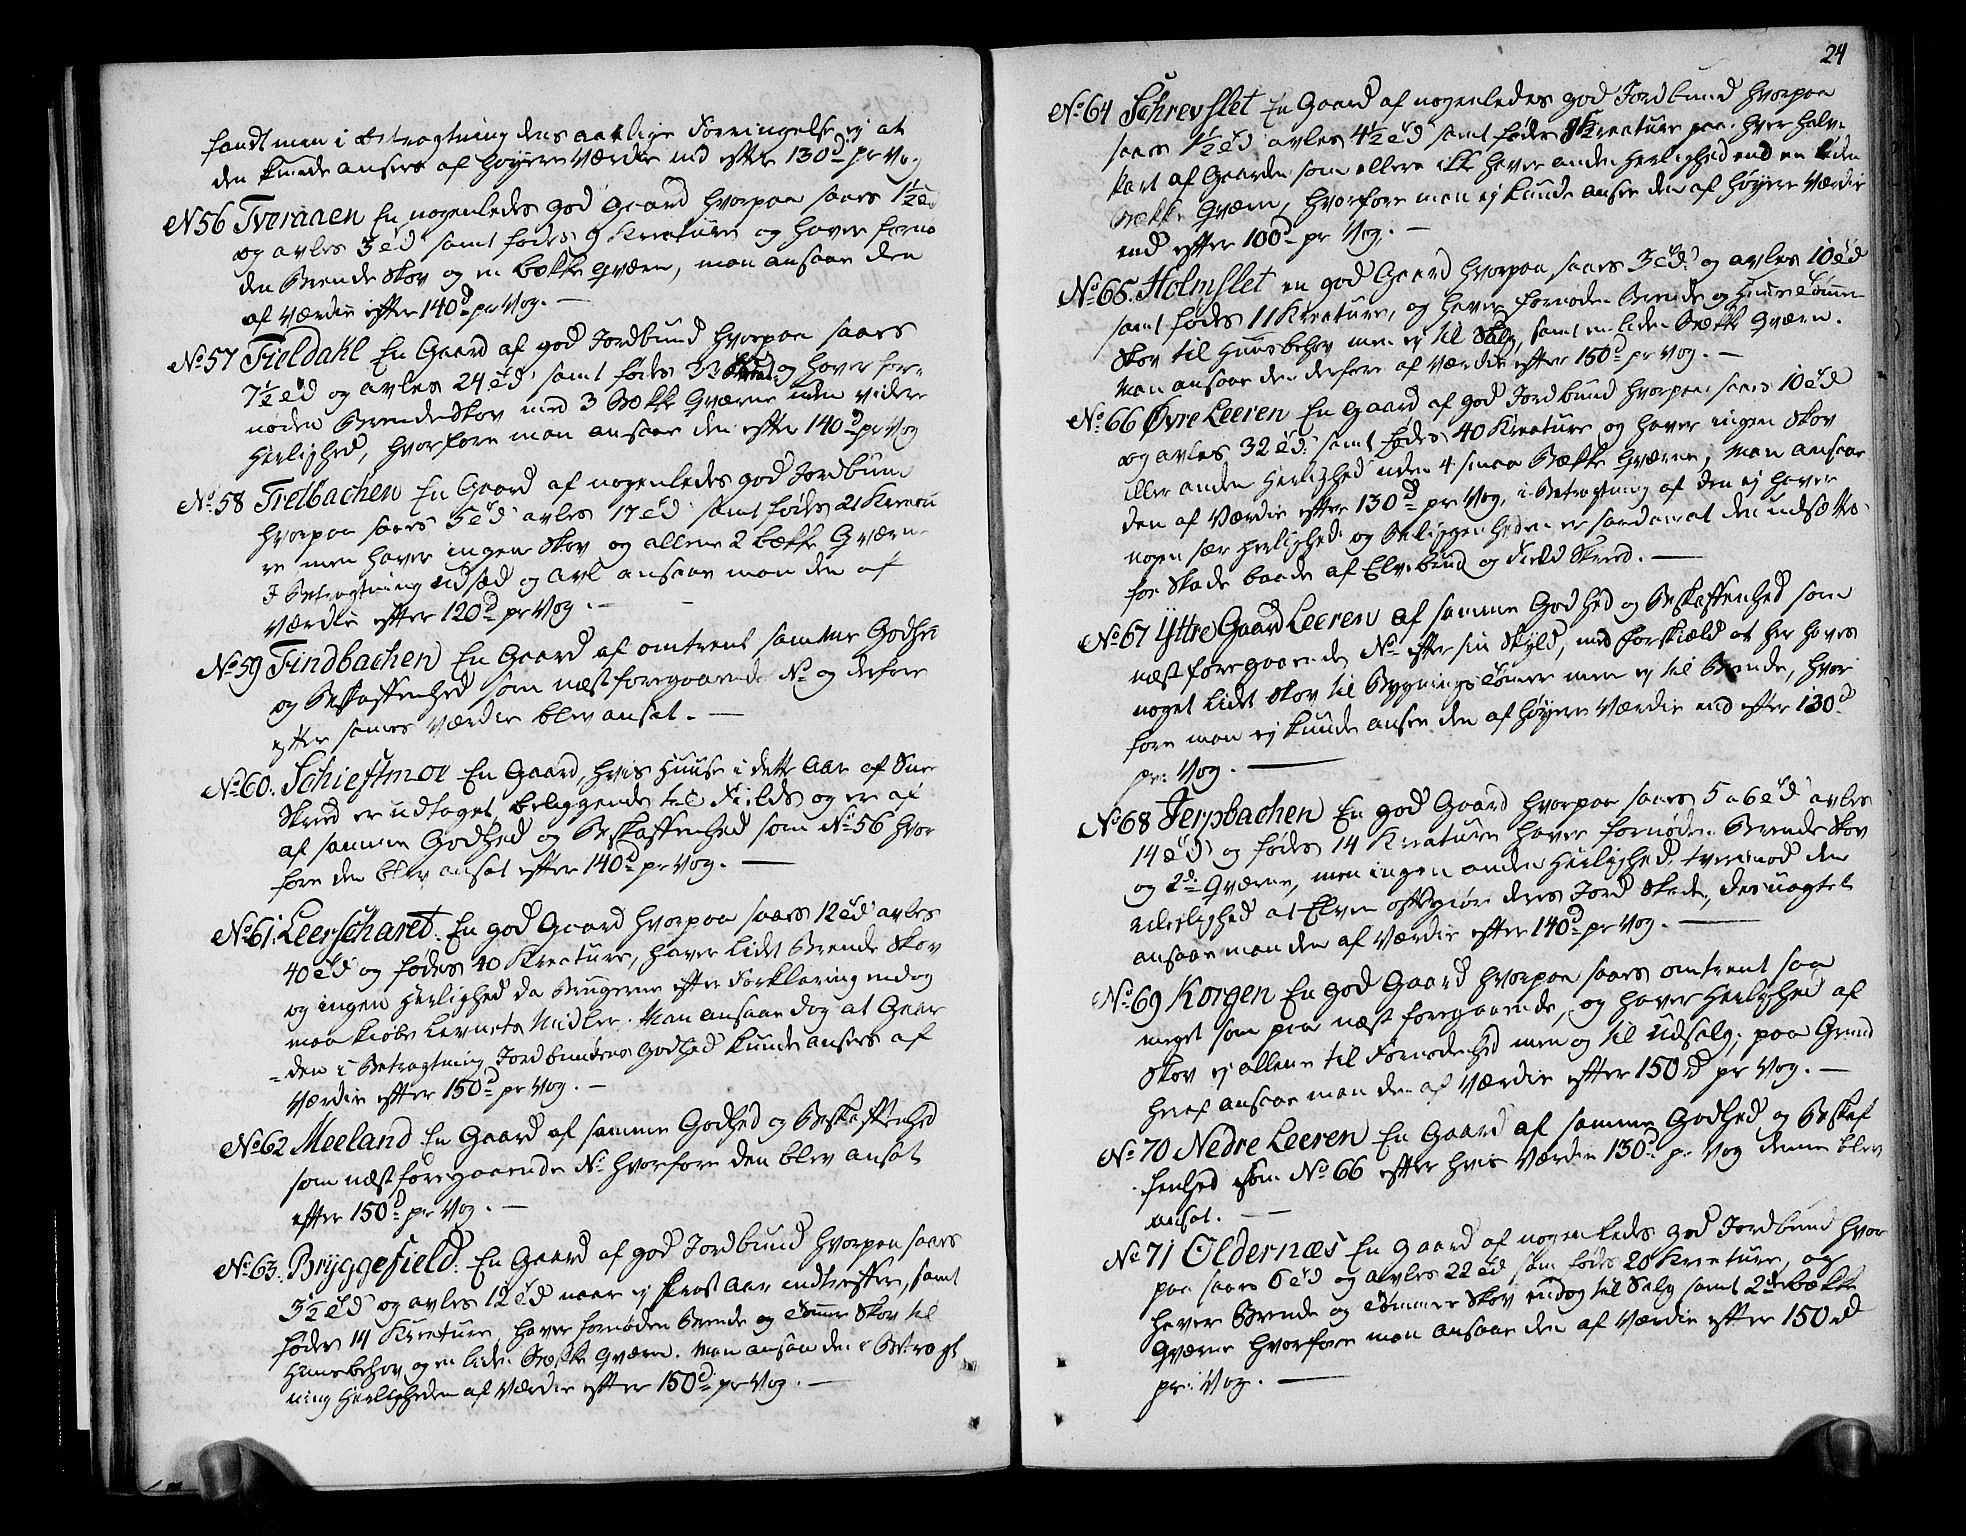 fandt men i Betragtning dens aarlige Forringelse ej at
den kunde ansees af høyere Værdie end efter 130d pr Vog
No 56 Tveraaen En nogenledes god Gaard hvorpaa saaes 1½ td
og avles 3 td samt fødes 9 Kreature og haver fornø
den Brende Skov og en bække qværn, man ansaae den
af Værdie efter 140d pr Vog. —
No 57 Fieldahl En Gaard af god Jordbund hvorpaa saaes
7½ td og avles 24 td samt fødes 33 og haver for-
nøden BrendeSkov med 3 Bække Qværne uden videre
Herlighed, hvorfore man ansaae den efter 140d pr Vog
No 58 Trelbachen En Gaard af nogenledes god Jordbund
hvorpaa saaes 5 td avles 17 td samt fødes 21 Kreatu
re men haver ingen Skov og allene 2 bække Qværne
I Betragtning udsæd og avl ansaae man den af
Værdie efter 120d pr Vog. —
No 59 Findbachen En Gaard af omtrent samme Godhed
og Beskaffenhed som næstforegaaende No og derfore
efter sames Værdie blev ansat. —
No 60. Schieftmoe En Gaard, hvis Huuse i dette Aar af Snee
Skreed er udtaget, beliggende til Fields og er af
af samme Godhed og Beskaffenhed som No 56 hvor
fore den blev ansat efter 140d pr Vog. —
No 61. Leerscharet. En god Gaard hvorpaa saaes 12 td avles
40 td og fødes 40 Kreature, haver Lidet Brende Skov
og ingen Herlighed da Brugerne efter Forklaring endog
maa kiøbe Levnets Midler. Man ansaae dog at Gaar
den i Betragtning Jordbundens Godhed kunde ansees af
Værdie efter 150d pr Vog. —
No 62 Meeland En Gaard af samme Godhed og Beskaffenhed
som næst foregaaende No hvorfore den blev ansat
efter 150d pr Vog. —
No 63. Bryggefield. En Gaard af god Jordbund hvorpaa saaes
3½ td og avles 12 td naar ej Frost Aar indtreffer, samt
fødes 14 Kreature, haver fornøden Brende og Tømmer Skov til
Huusbehov og en liden Bække Qværn. Man ansaae den i Betragt
ning Herligheden af Værdie efter 150d pr Vog. —
24
No 64 Schrevslet En Gaard af nogenledes god Jordbund hvorpaa
saaes 1½ td avles 4½ td samt fødes Kreature paa hver halv-
Part af Gaarden som ellers ikke haver anden Herlighed end en liden
Bække Qværn, hvorfore man ej kunde ansee den af høyere Værdie
end efter 100d pr Vog. —
No 65. Holmslet en god Gaard hvorpaa saaes 3 td og avles 10 td
samt fødes 11 Kreature, og haver fornøden Brende og Huus Tømmer
Skov til Huusbehov men ej til Salg, samt en liden Bække Qværn.
Man ansaae den derfore af Værdie efter 150d pr Vog. —
No 66 Øvre Leeren En Gaard af god Jordbund hvorpaa saaes 10 td
og avles 32 td samt fødes 40 Kreature og haver ingen Skov
eller anden Herlighed uden 4 smaa Bække Qværne, Man ansaae
den af Værdie efter 130d pr Vog, i Betragtning af den ej haver
nogen sær Herlighed og Beliggenheden er saadan at den udsættes
for Skade baade af Elvebrud og Field Skreed. —
No 67 Yttre Gaard Leeren af samme Godhed og Beskaffenhed som
næst foregaaende No efter sin Skyld, med Forskield at her haves
noget Lidt Skov til Bygnings Tømer men ej til Brende, hvor
fore man ej kunde ansee den af høyere Værdie end efter 130d
pr: Vog. —
No 68 Jerpbachen En god Gaard hvorpaa saaes 5 a 6 td avles
14 td og fødes 14 Kreature haver fornøden Brende Skov
og 2de Qværne, men ingen anden Herlighed, tvertimod den
uleylighed at Elven ofte giør deres Jord Skade, desuagtet
ansaae man den af Værdie efter 140d pr Vog. —
No 69 Korgen En god Gaard hvorpaa saaes omtrent saa
meget som paa næst foregaaende, og haver Herlighed af
Skov ej allene til Fornødenhed men og til Udsalg; paa Grund
heraf ansaae man den af Værdie efter 150 d pr Vog. —
No 70 Nedre Leeren En Gaard af samme Godhed og Beskaf
fenhed som No 66 efter hvis Værdie 130d pr Vog denne blev
ansat. —
No 71 Oldernæs En Gaard af nogenledes god Jordbund hvor
paa saaes 6 td og avles 22 td fødes 20 Kreature, og
haver Brende og Tømmer Skov endog til Salg samt 2de bække
Qværne hvorfore man ansaae den af Værdie efter 150 d
pr: Vog. —